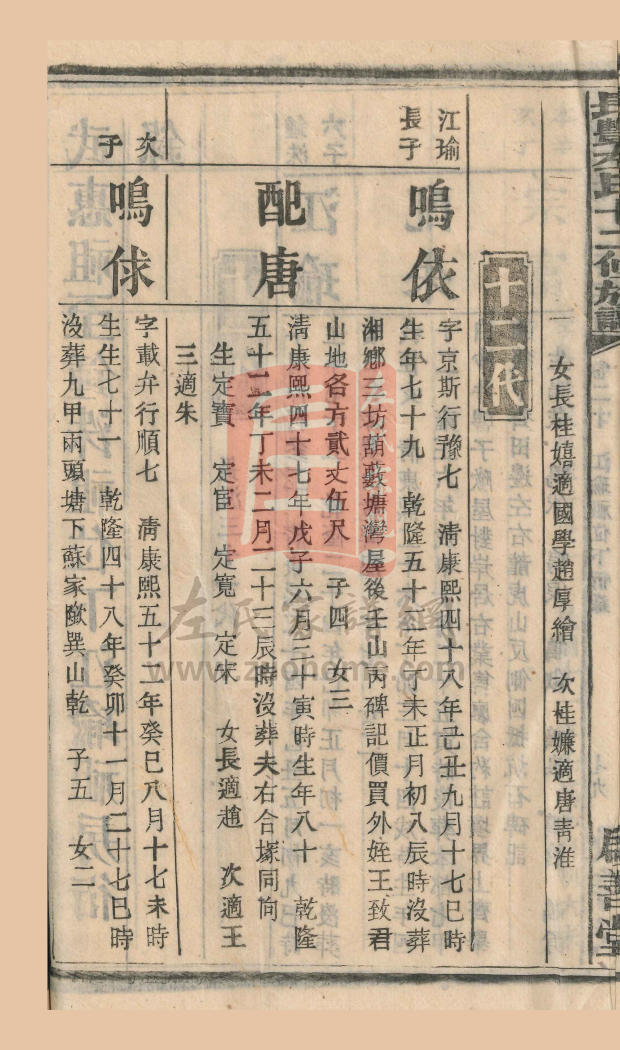 女長桂嬉適國學趙厚繪 次桂嫌適唐青淮
十二代
江瑜長子
鳴依
字京斯行豫七 淸康熙四十八年己丑九月十七巳時
生年七十九 乾隆五十二年丁未正月初八辰時沒葬
湘鄉三坊葫藪塘灣屋後壬山丙碑記價買外姪王致君
山地各方貳丈伍尺 子四 女三
配唐
淸康熙四十七年戊子六月三十寅時生年八十 乾隆
五十二年丁未二月二十三辰時沒葬夫右合塚同向
生定寶 定宦 定寬 定宋 女長適趙 次適王
三適朱
次子
鳴俅
字載弁行順七 淸康熙五十二年癸巳八月十七未時
生生七十一 乾隆四十八年癸卯十一月二十七巳時
沒葬九甲兩頭塘下蘇家㙟巽山乾 子五 女二
左氏家譜網
www.zuohome.com